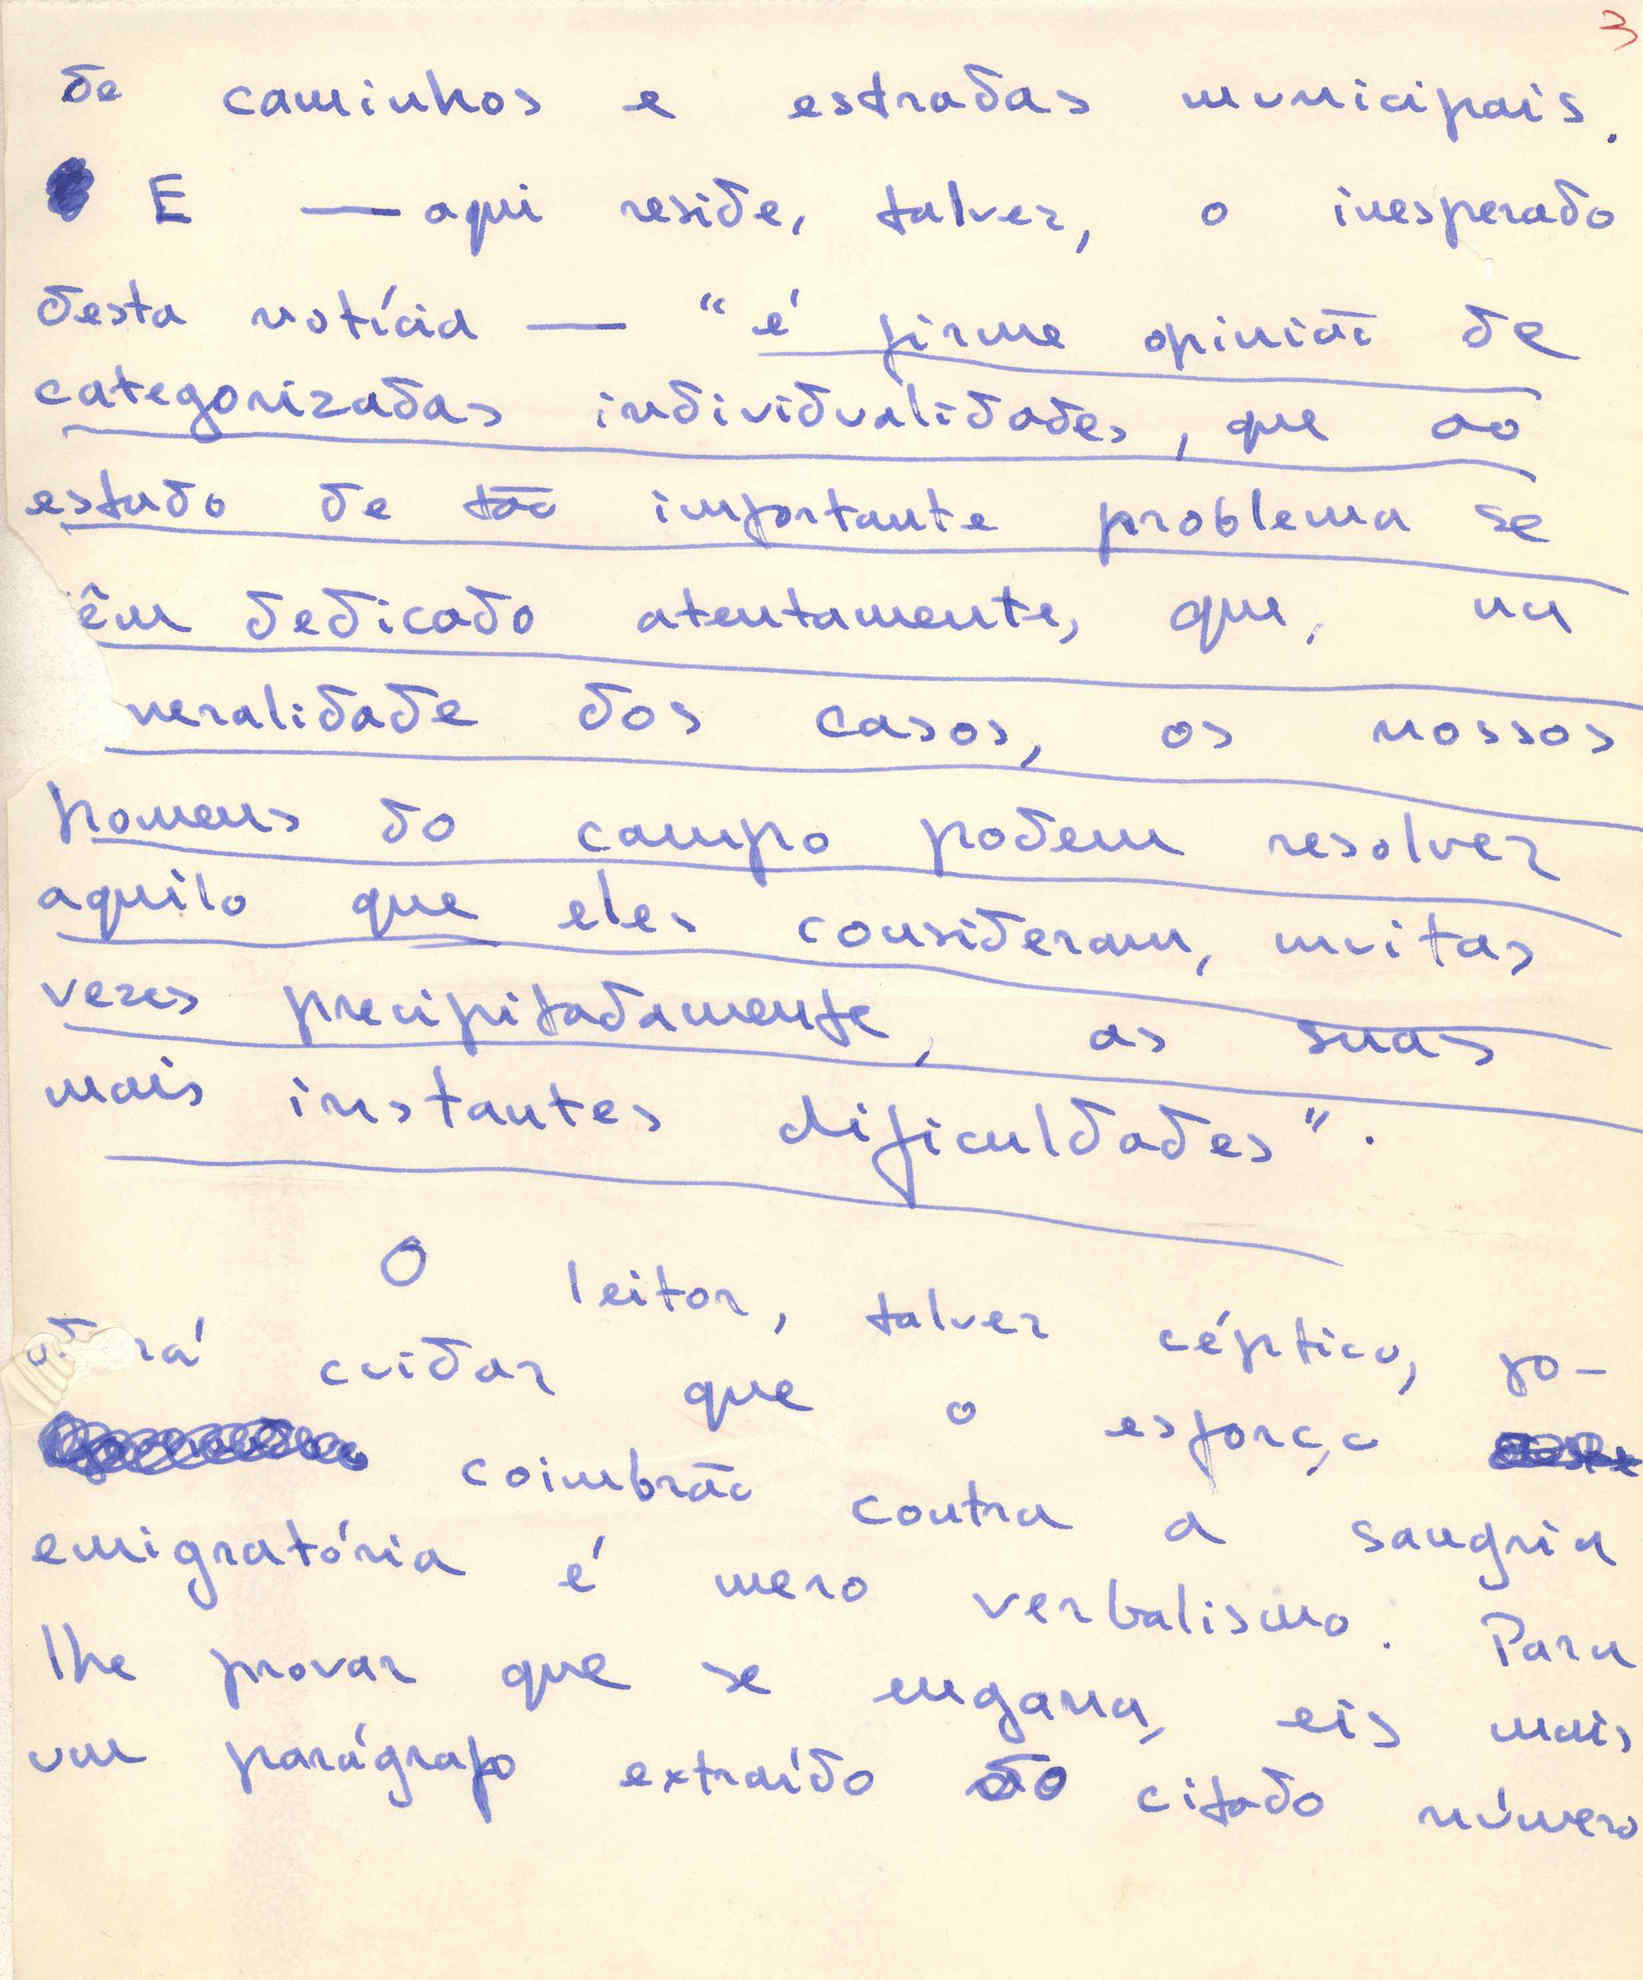 3
de caminhos e estradas municipais.
E — aqui reside, talvez, o inesperado
desta notícia — "é firme opinião de
categorizadas individualidades, que ao
estudo de tão importante problema se
êm dedicado atentamente, que, na
neralidade dos casos, os nossos
homens do campo podem resolver
aquilo que eles consideram, muitas
vezes precipitadamente, as suas
mais instantes dificuldades".
O leitor, talvez céptico, po-
rá cuidar que o esforço
coimbrão contra a sangria
emigratória é mero verbalismo. Para
lhe provar que se engana, eis mais
um parágrafo extraído do citado número